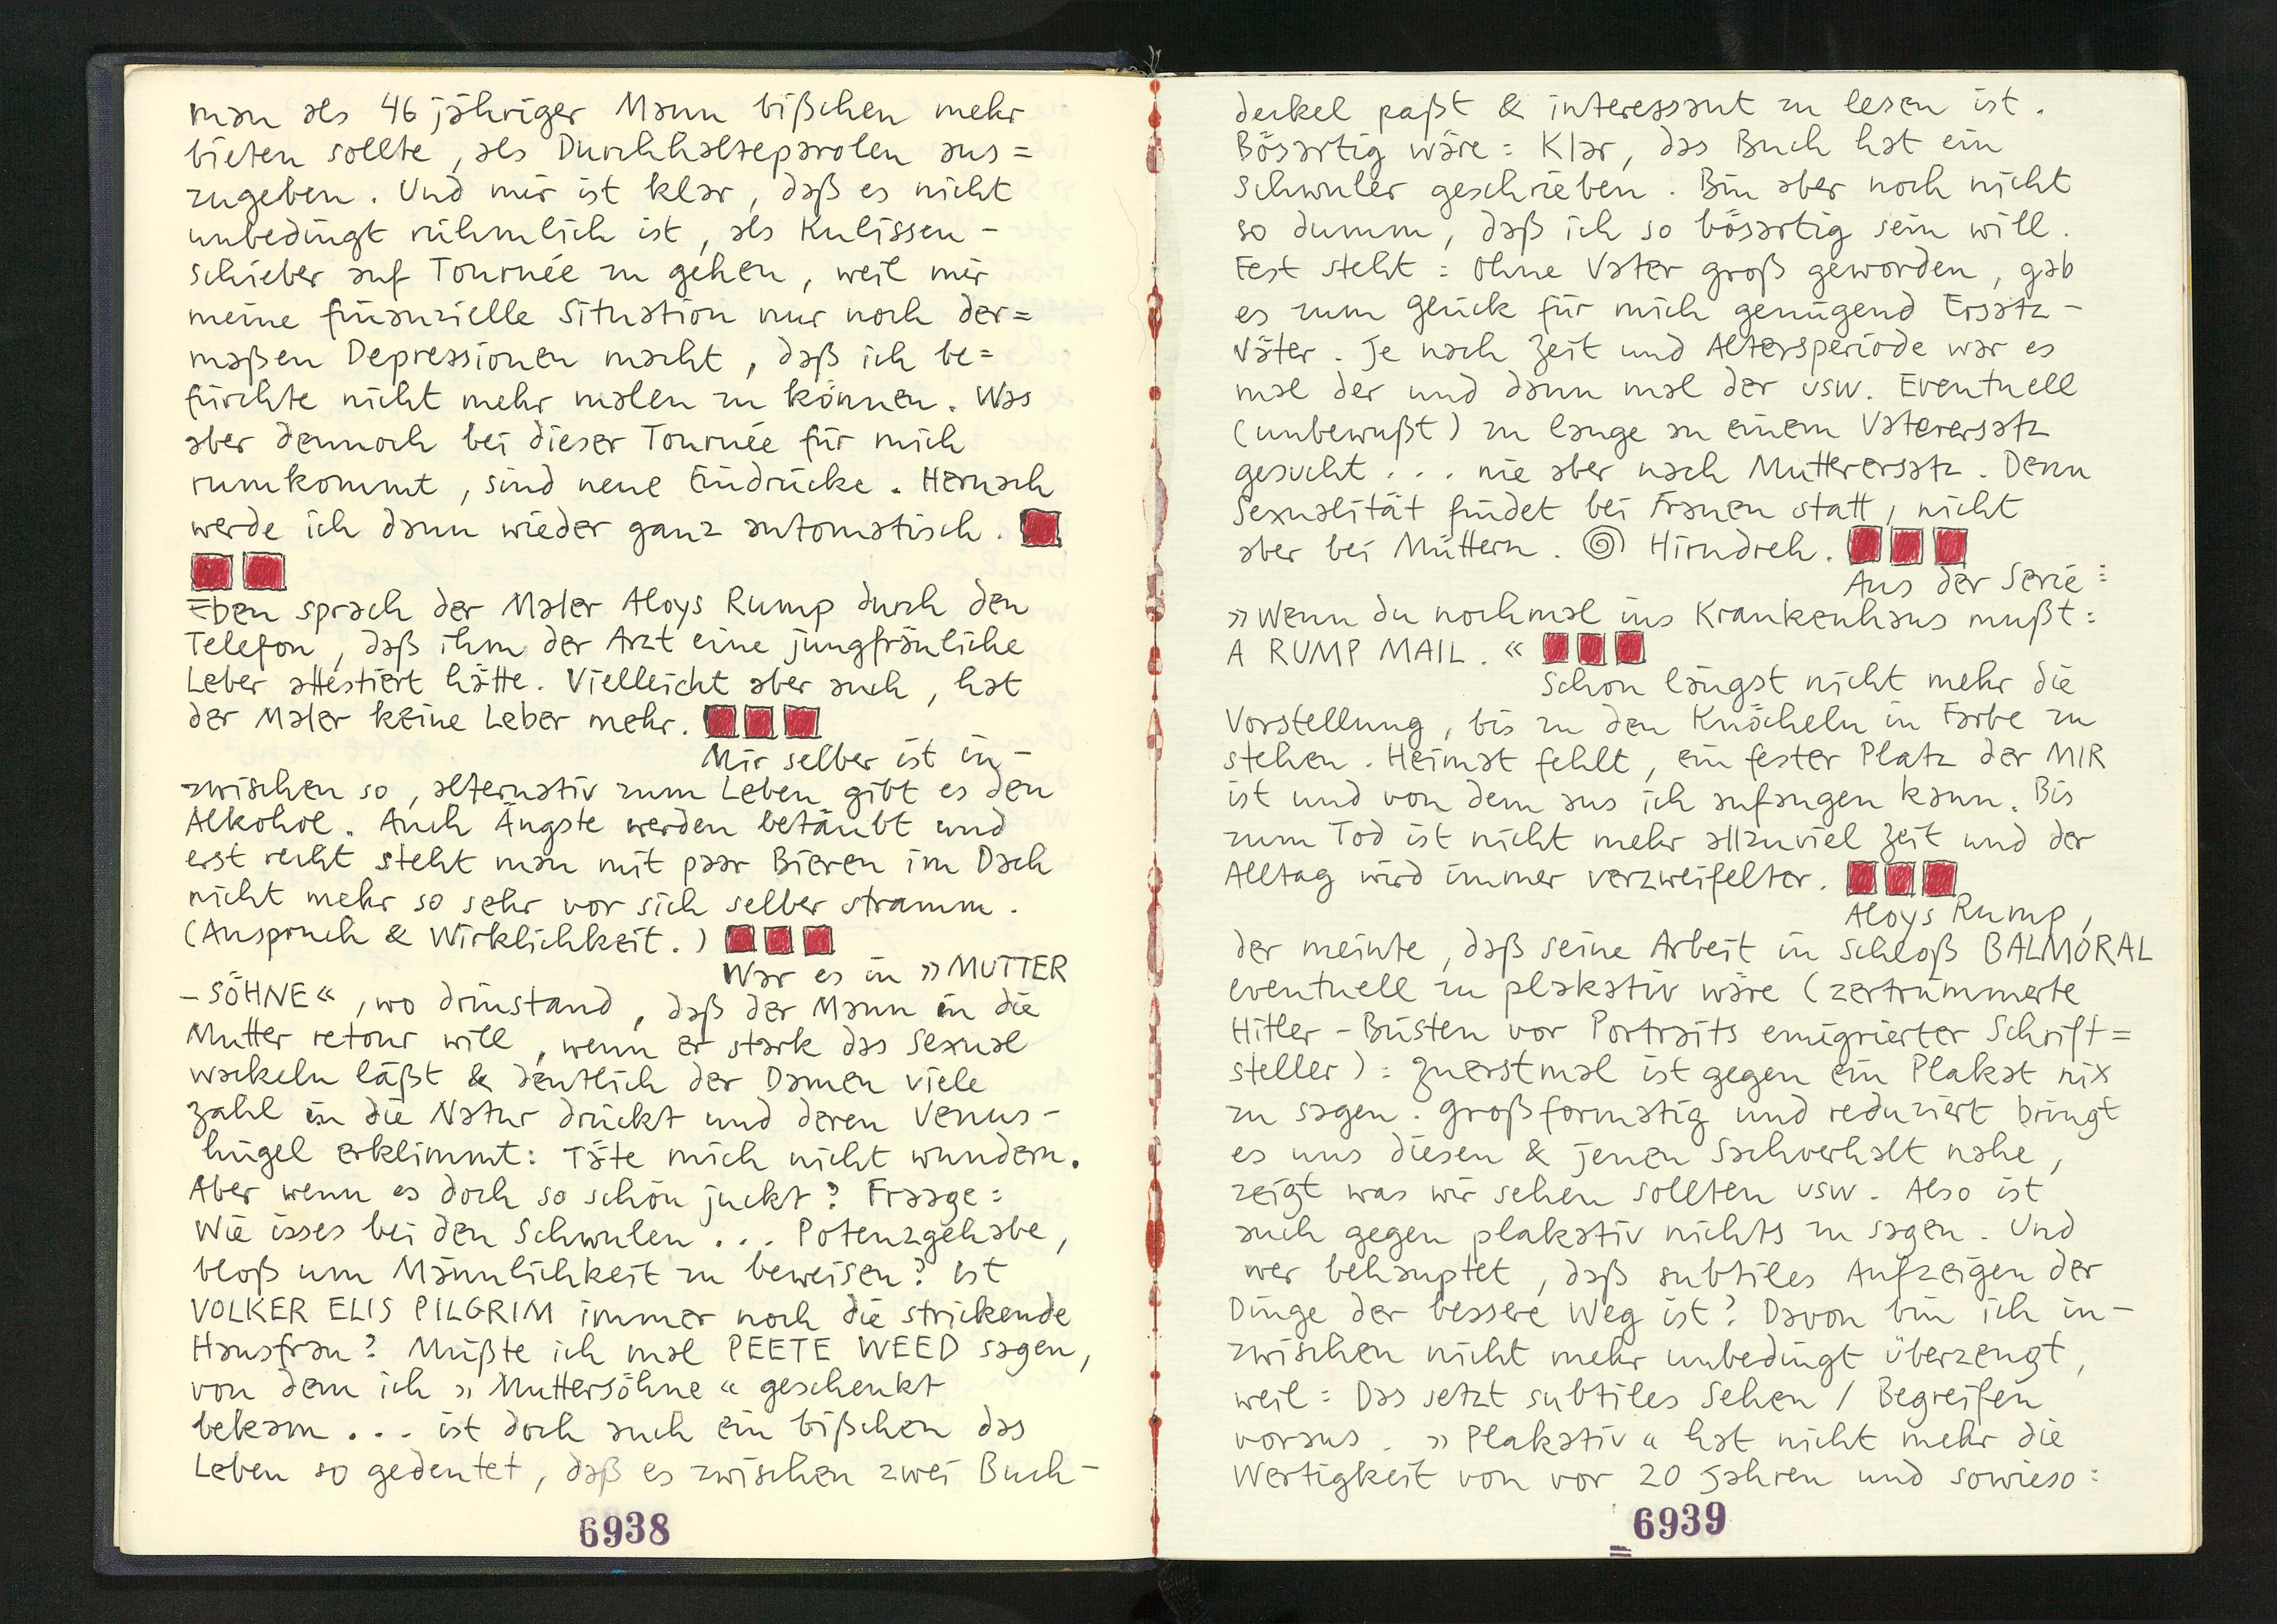 man als 46 jähriger Mann bißchen mehr
bieten sollte, als Durchhalteparolen aus=
zugeben. Und mir ist klar, daß es nicht
unbedingt rühmlich ist, als Kulissen-
schieber auf Tournée zu gehen, weil mir
meine finanzielle Situation nur noch der=
maßen Depressionen macht, daß ich be=
fürchte nicht mehr malen zu können. Was
aber dennoch bei dieser Tournée für mich
rumkommt, sind neue Eindrücke. Hernach
werde ich dann wieder ganz automatisch.
Eben sprach der Maler Aloys Rump durch den
Telefon, daß ihm der Arzt eine jungfräuliche
Leber attestiert hätte. Vielleicht aber auch, hat
der Maler keine Leber mehr.
Mir selber ist in-
zwischen so, alternativ zum Leben gibt es den
Alkohol. Auch Ängste werden betäubt und
erst recht steht man mit paar Bieren im Dach
nicht mehr so sehr vor sich selber stramm.
(Anspruch & Wirklichkeit.)
War es in »MUTTER
-SÖHNE«, wo drinstand, daß der Mann in die
Mutter retour will, wenn er stark das Sexual
wackeln läßt & deutlich der Damen viele
Zahl in die Natur drückt und deren Venus-
hügel erklimmt: Täte mich nicht wundern.
Aber wenn es doch so schön juckt? Fraage:
Wie isses bei den Schwulen ... Potenzgehabe,
bloß um Männlichkeit zu beweisen? Ist
VOLKER ELIS PILGRIM immer noch die strickende
Hausfrau? Müßte ich mal PEETE WEED sagen,
von dem ich »Muttersöhne« geschenkt
bekam ... ist doch auch ein bißchen das
Leben so gedeutet, daß es zwischen zwei Buch-
6938
deckel paßt & interessant zu lesen ist.
Bösartig wäre: Klar, das Buch hat ein
Schwuler geschrieben. Bin aber noch nicht
so dumm, daß ich so bösartig sein will.
Fest steht: Ohne Vater groß geworden, gab
es zum Glück für mich genügend Ersatz-
Väter. Je nach Zeit und Altersperiode war es
mal der und dann mal der usw. Eventuell
(unbewußt) zu lange an einem Vaterersatz
gesucht ... nie aber nach Mutterersatz. Denn
Sexualität findet bei Frauen statt, nicht
aber bei Müttern. Hirndreh.
Aus der Serie:
»Wenn du nochmal ins Krankenhaus mußt:
A RUMP MAIL.«
Schon längst nicht mehr die
Vorstellung, bis zu den Knöcheln in Farbe zu
stehen. Heimat fehlt, ein fester Platz der MIR
ist und von dem aus ich anfangen kann. Bis
zum Tod ist nicht mehr allzuviel Zeit und der
Alltag wird immer verzweifelter.
Aloys Rump,
der meinte, daß seine Arbeit in Schloß BALMORAL
eventuell zu plakativ wäre (zertrümmerte
Hitler-Büsten vor Portraits emigrierter Schrift=
steller): Zuerstmal ist gegen ein Plakat nix
zu sagen. Großformatig und reduziert bringt
es uns diesen & jenen Sachverhalt nahe,
zeigt was wir sehen sollten usw. Also ist
auch gegen plakativ nichts zu sagen. Und
wer behauptet, daß subtiles Aufzeigen der
Dinge der bessere Weg ist? Davon bin ich in-
zwischen nicht mehr unbedingt überzeugt,
weil: Das setzt subtiles Sehen / Begreifen
voraus. »Plakativ« hat nicht mehr die
Wertigkeit von vor 20 Jahren und sowieso:
6939